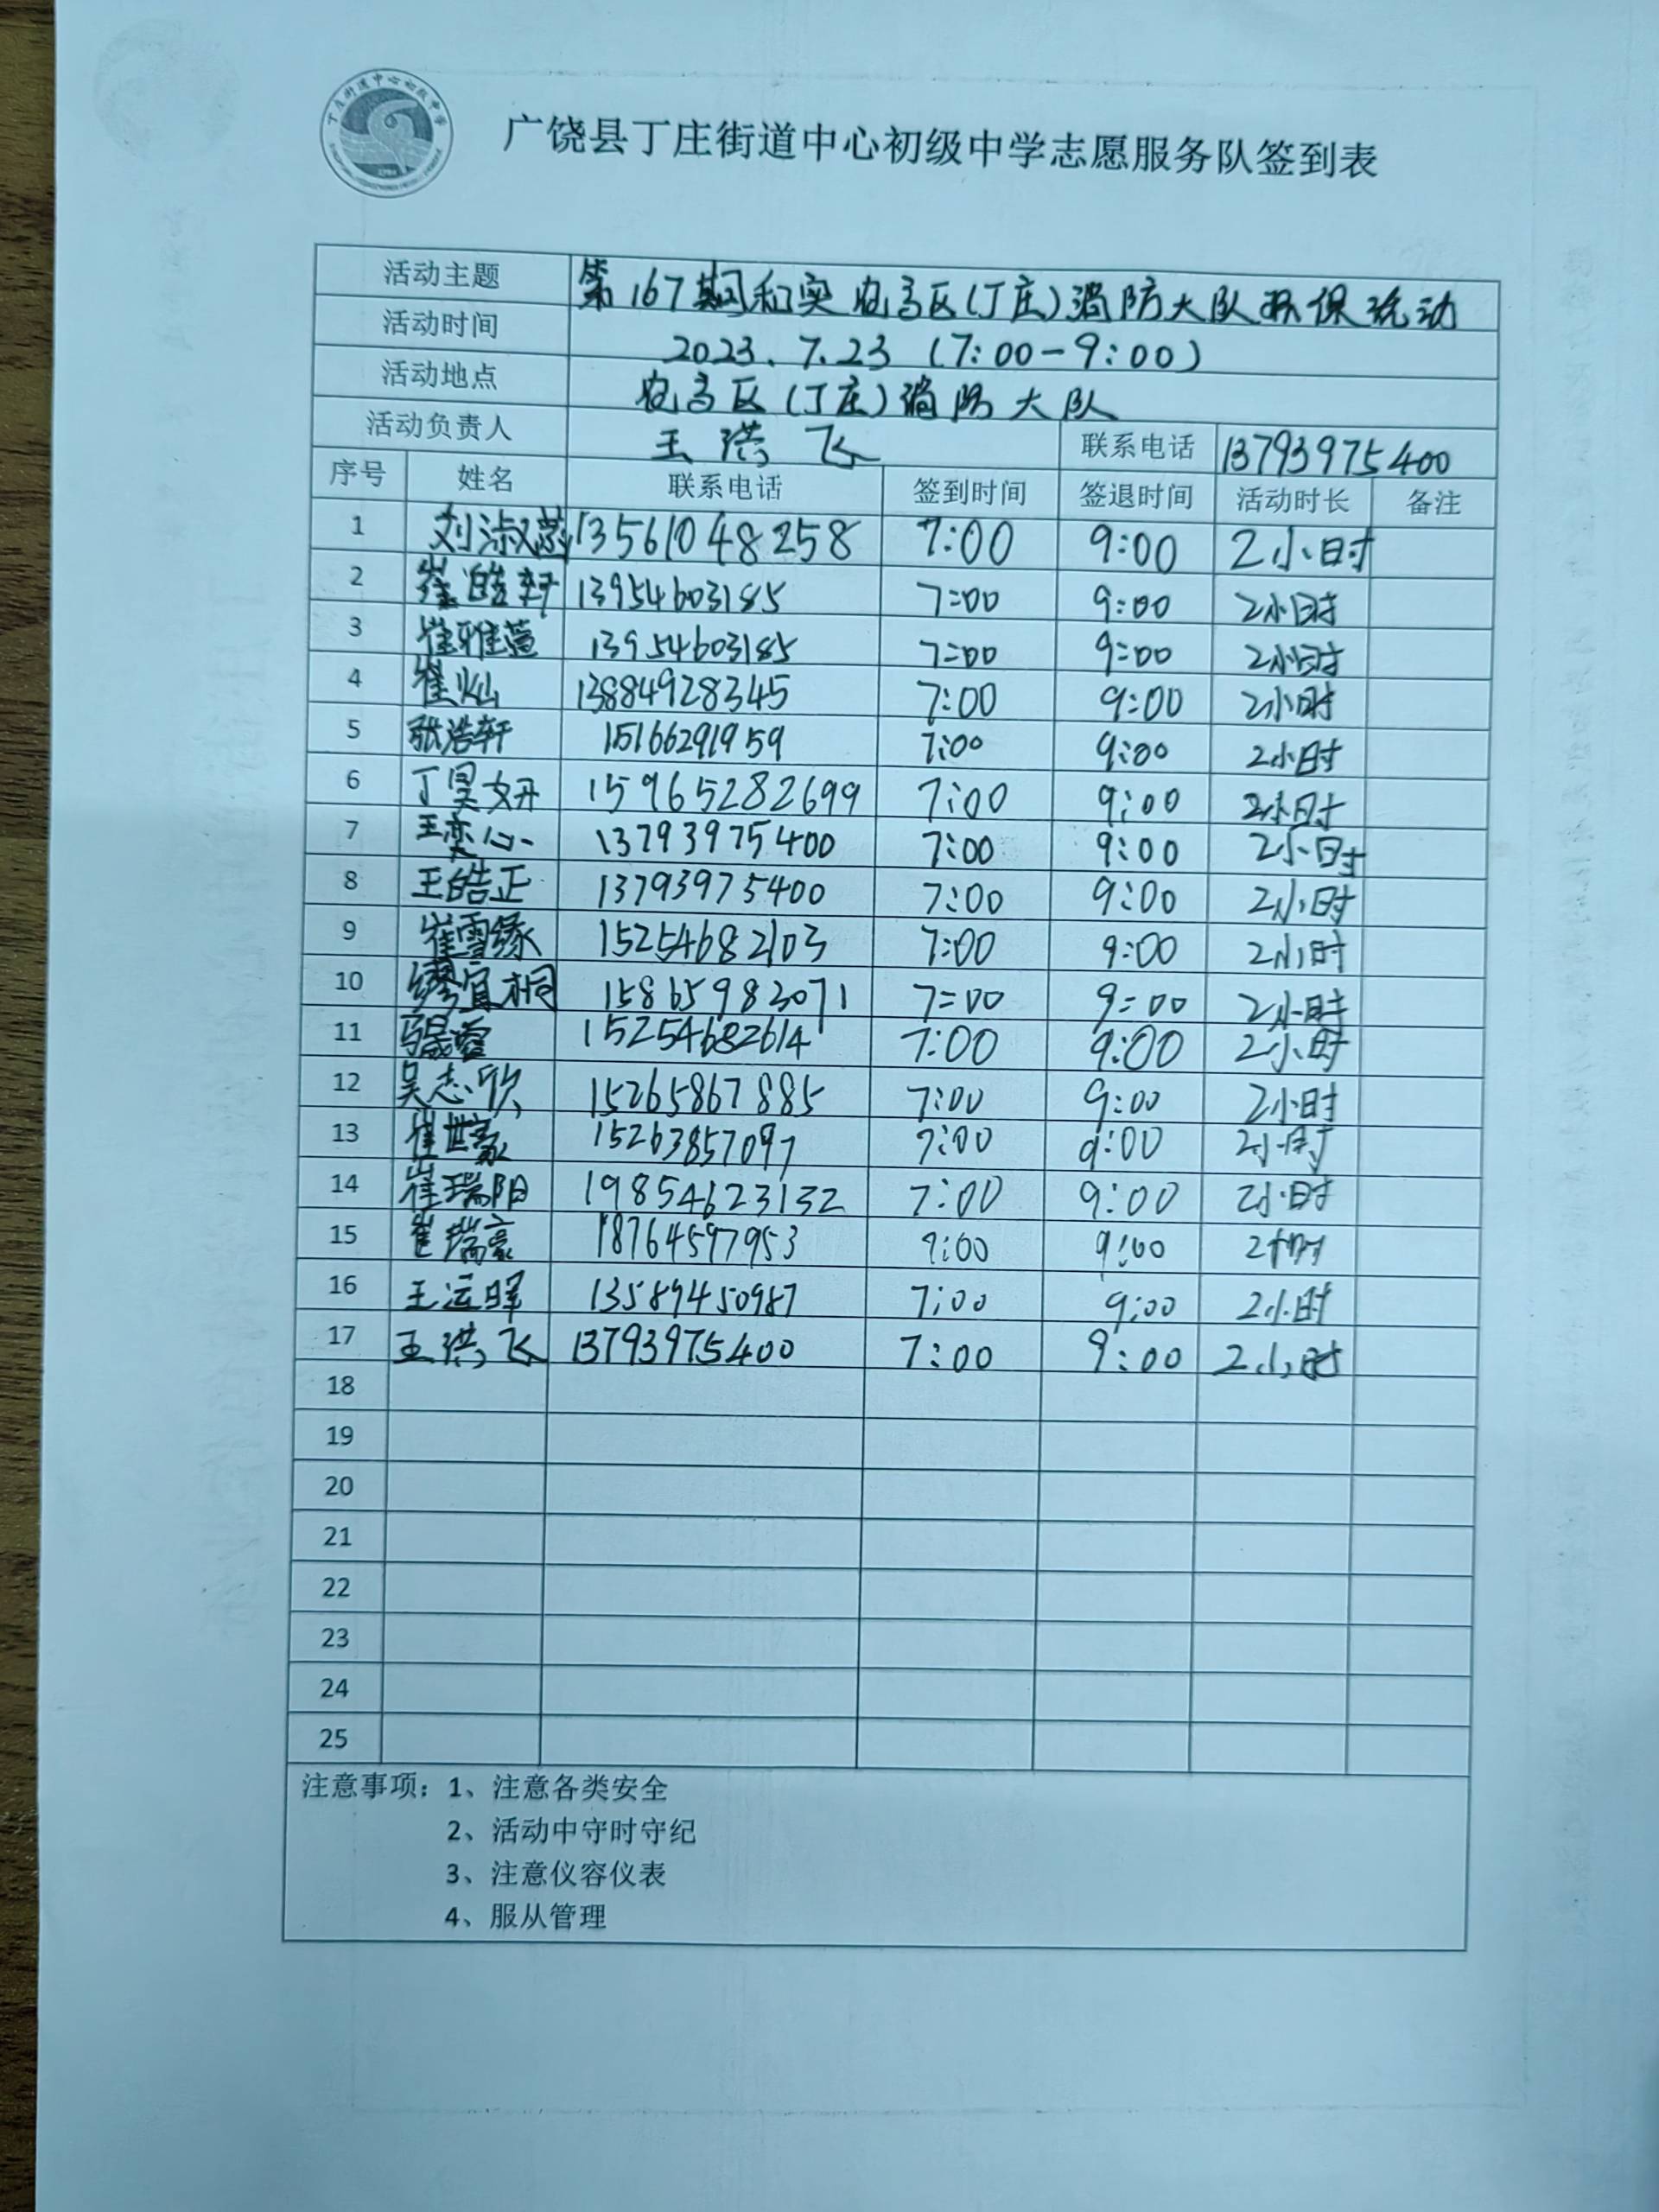 广饶县丁庄街道中心初级中学志愿服务队签到表
活动主题 第167期和实农高区(丁庄)消防大队环保活动
活动时间 2023.7.23 (7:00-9:00)
活动地点 农高区(丁庄)消防大队
活动负责人 王洪飞 联系电话 13793975400
序号 姓名 联系电话 签到时间 签退时间 活动时长 备注
1 刘淑蕊 13561048258 7:00 9:00 2小时
2 崔皓轩 13954603185 7:00 9:00 2小时
3 崔雅萱 13954603185 7:00 9:00 2小时
4 崔灿 13884928345 7:00 9:00 2小时
5 张浩轩 15166291959 7:00 9:00 2小时
6 丁昊妍 15965282699 7:00 9:00 2小时
7 王奕心 13793975400 7:00 9:00 2小时
8 王皓正 13793975400 7:00 9:00 2小时
9 崔雪缘 15254682103 7:00 9:00 2小时
10 缪宜桐 15865983071 7:00 9:00 2小时
11 15254682614 7:00 9:00 2小时
12 吴志欣 15265867885 7:00 9:00 2小时
13 崔世豪 15263857097 7:00 9:00 2小时
14 崔瑞阳 19854623132 7:00 9:00 2小时
15 崔瑞豪 18764597953 7:00 9:00 2小时
16 王运晖 13589450987 7:00 9:00 2小时
17 王洪飞 13793975400 7:00 9:00 2小时
18
19
20
21
22
23
24
25
注意事项：1、注意各类安全
2、活动中守时守纪
3、注意仪容仪表
4、服从管理